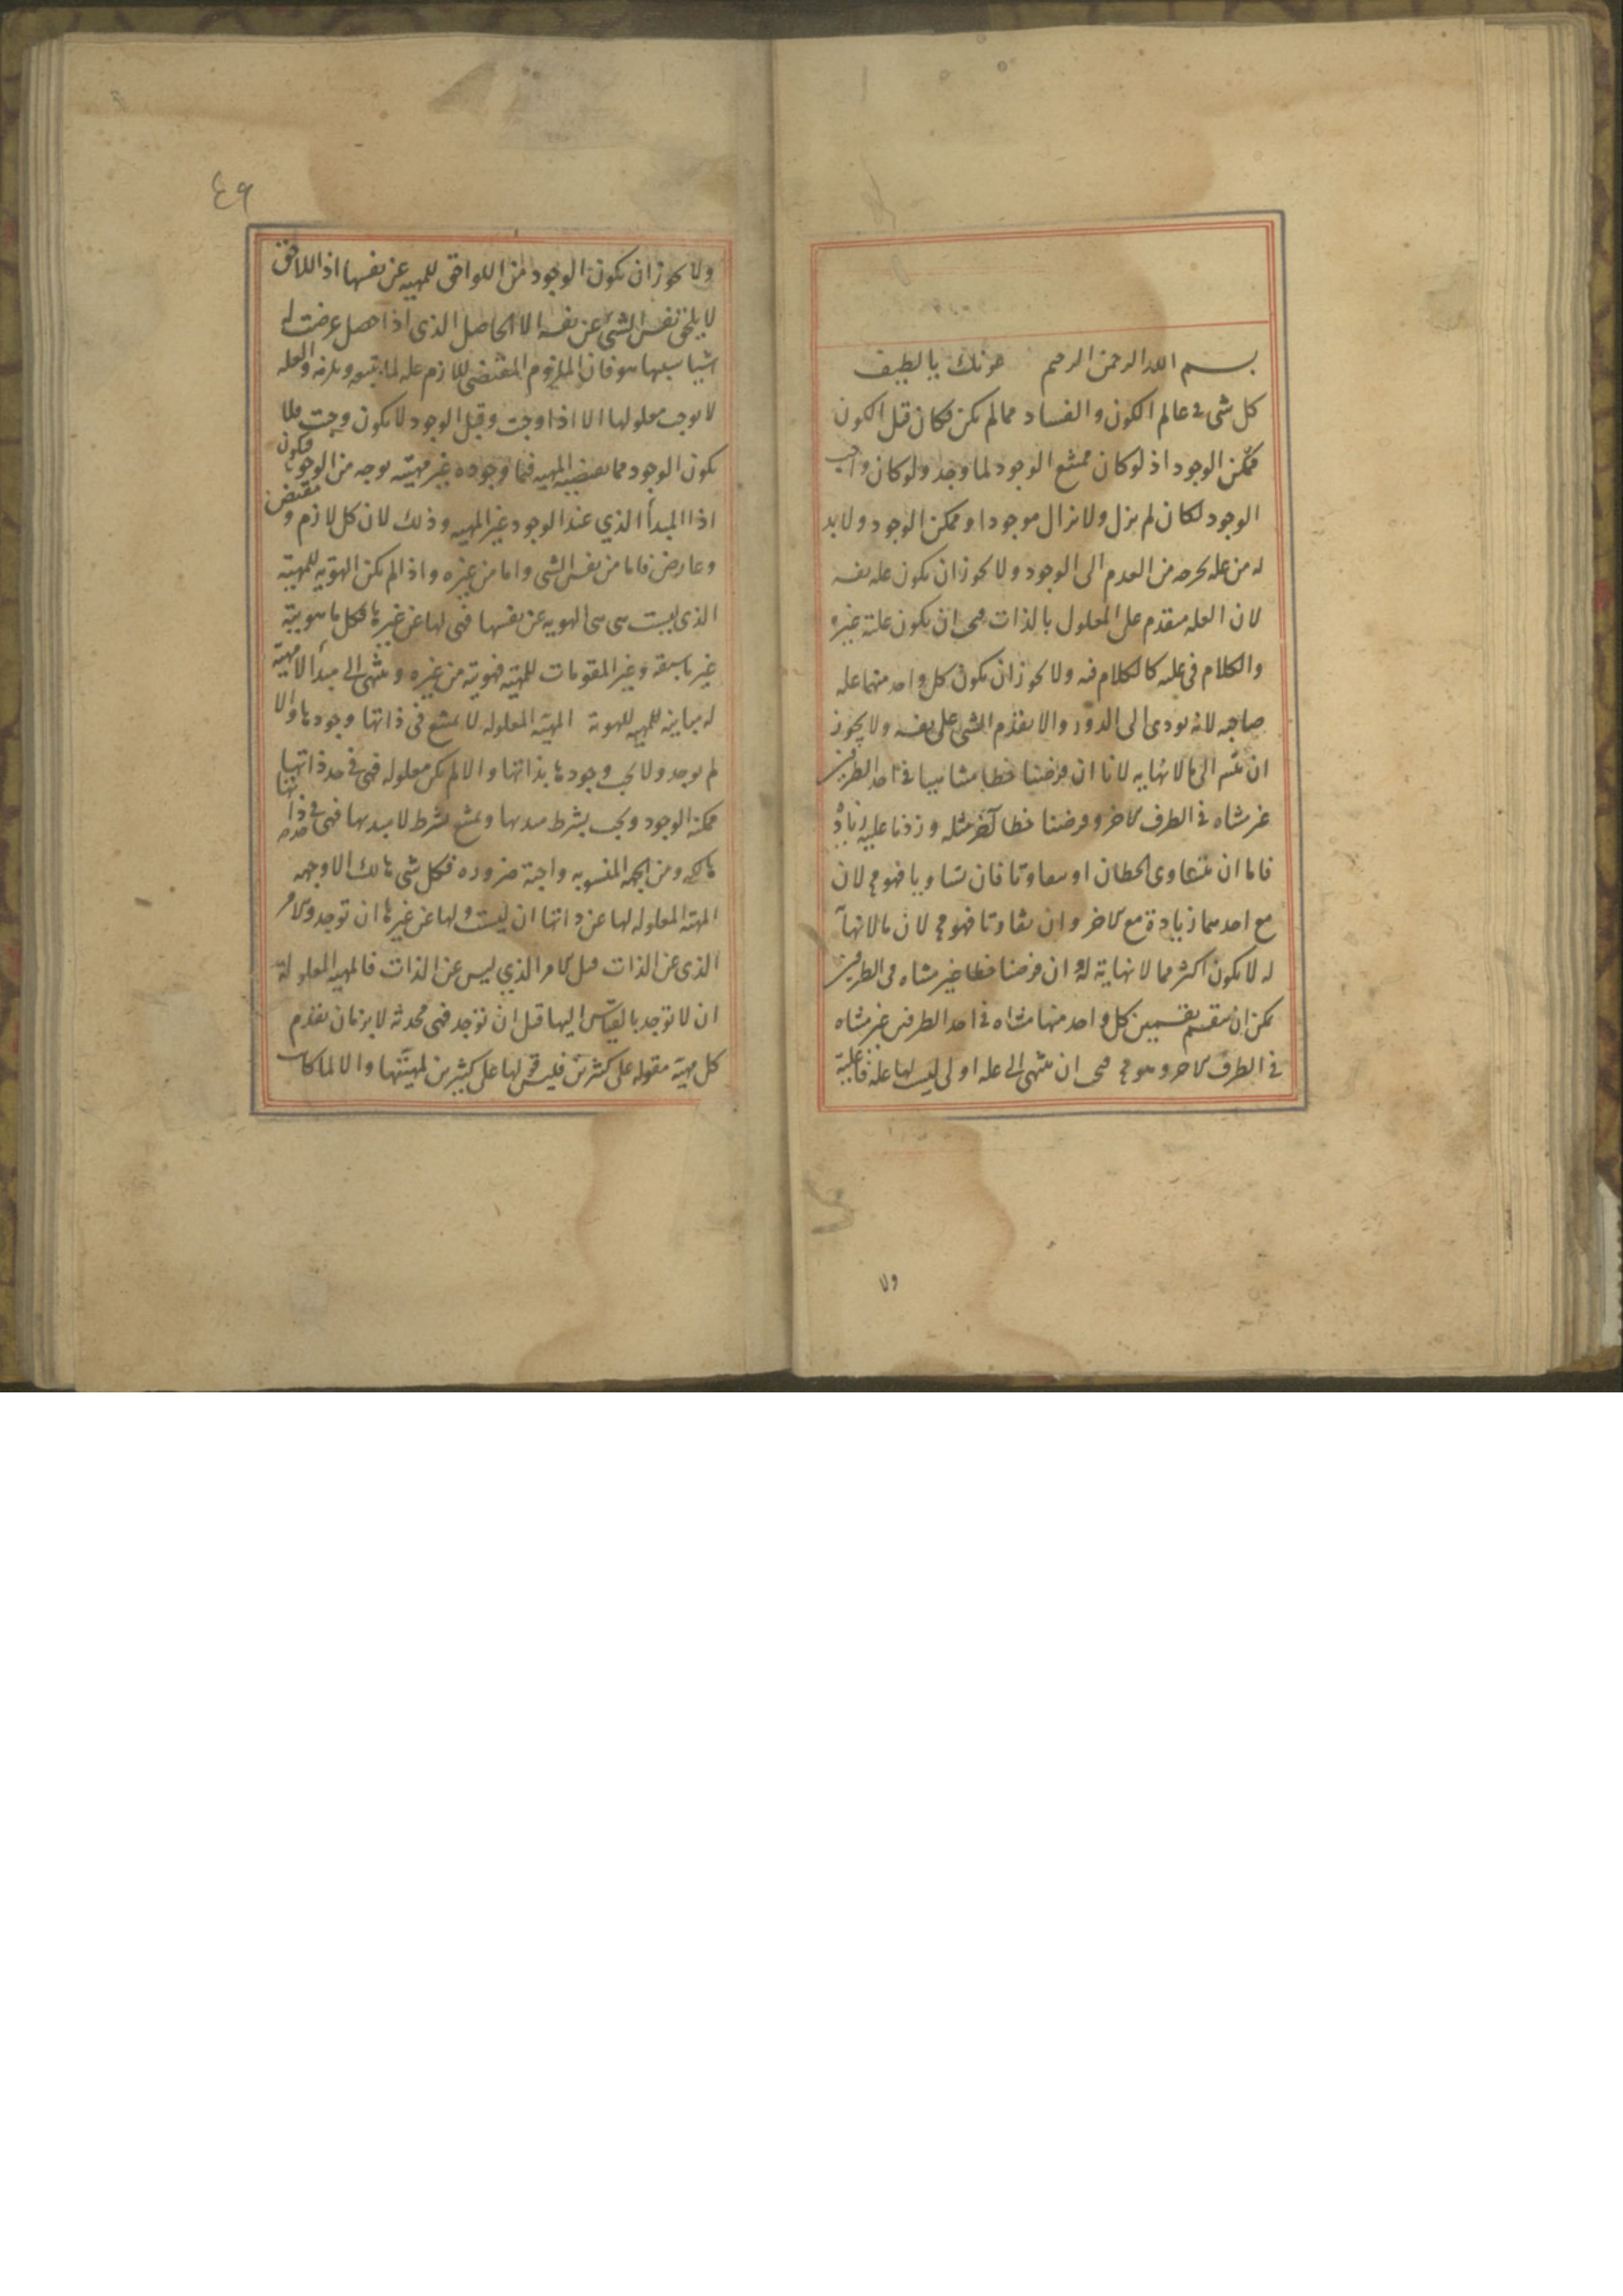 بسم الله الرحمن الرحيم عونك يا لطيف
كل شى فى عالم الكون والفساد مما لم يكن فكان قبل الكون
ممكن الوجود اذ لو كان ممتنع الوجود لما وجد ولو كان واجب
الوجود لكان لم يزل ولا يزال موجودا وممكن الوجود ولا بد
له من عله يخرجه من العدم الى الوجود ولا يجوز ان يكون عله نفسه
لان العله متقدم على المعلول بالذات فيجب ان يكون علته غيره
والكلام فى علته كالكلام فيه ولا يجوز ان يكون كل واحد منهما عله
صاحبه لانه يودى الى الدور والا تقدم الشى على نفسه ولا يجوز
ان الى ما لا نهايه لانا ان فرضنا خطا متناهيا فى احد الطرفين
غير متناه فى الطرف الاخر وفرضنا خطا آخر مثله وزدنا عليه زيادة
فاما ان يتساوى الخطان او يتفاوتا فان تساويا فهو مح لان
مع احدهما زيادة مع الاخر وان تفاوتا فهو مح لان ما لا نهاية
له لا يكون اكثر مما لا نهاية له وان فرضنا خطا غير متناه فى الطرفين
يمكن ان ينقسم بقسمين كل واحد منهما متناه فى احد الطرفين غير متناه
فى الطرف الاخر وهو مح فيجب ان ينتهى الى عله اولى ليست لها عله فاعلية
ولا
٤٩
ولا يجوز ان يكون الوجود من اللواحق للمهيه عن نفسها اذ اللاحق
لا يلحق نفس الشى عن نفسه الا الحاصل الذى اذا حصل عرضت له
اشيا سببها هو فان الملزوم المقتضى للازم عله لما يتبعه ويلزمه والعله
لا يوجب معلولها الا اذا وجبت وقبل الوجود لا يكون وجبت فلا
يكون الوجود مما يقتضيه المهيه فيما وجوده غير مهيته بوجه من الوجوه فيكون
اذا المبدأ الذي عنه الوجود غير المهيه وذلك لان كل لازم ومقتض
وعارض فاما من نفس الشى واما من غيره واذا لم يكن الهوية للمهية
الذى ليست هى هى الهويه عن نفسها فهى لها عن غيرها فكل ما هويته
غير ماهيته وغير المقومات للمهية فهويته من غيره وينتهى الى مبدأ لا مهية
له مباينه للمهيه للهوية المهية المعلوله لا يمتنع فى ذاتها وجودها والا
لم يوجد ولا يجب وجودها بذاتها والا لم يكن معلوله فهى فى حد ذاتها
ممكنة الوجود ويجب بشرط مبديها ويمتنع بشرط لا مبديها فهى فى حد ذاتها
هالكه ومن الجهه المنسوبه واجبة ضروره فكل شى هالك الا وجهه
المهية المعلوله لها عن ذاتها ان ليست ولها عن غيرها ان توجد والامر
الذى عن الذات قبل الامر الذي ليس عن الذات فالمهيه المعلولة
ان لا توجد بالقياس اليها قبل ان توجد فهى محدثه لا بزمان تقدم
كل مهية مقوله على كثيرين فليس لها على كثيرين لمهيتها والا لما كانت